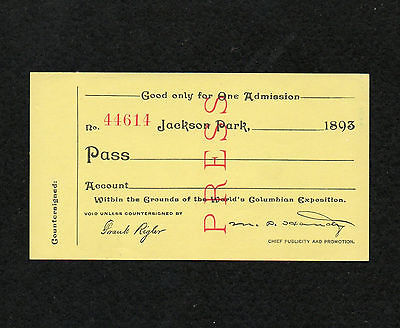 Good only for One Admission
No. 44614 Jackson Park, 1893
Pass
Account
Within the Grounds of the World's Columbian Exposition.
VOID UNLESS COUNTERSIGNED BY
Frank Rigler
M. P. Handy
CHIEF PUBLICITY AND PROMOTION.
Countersigned:
PRESS